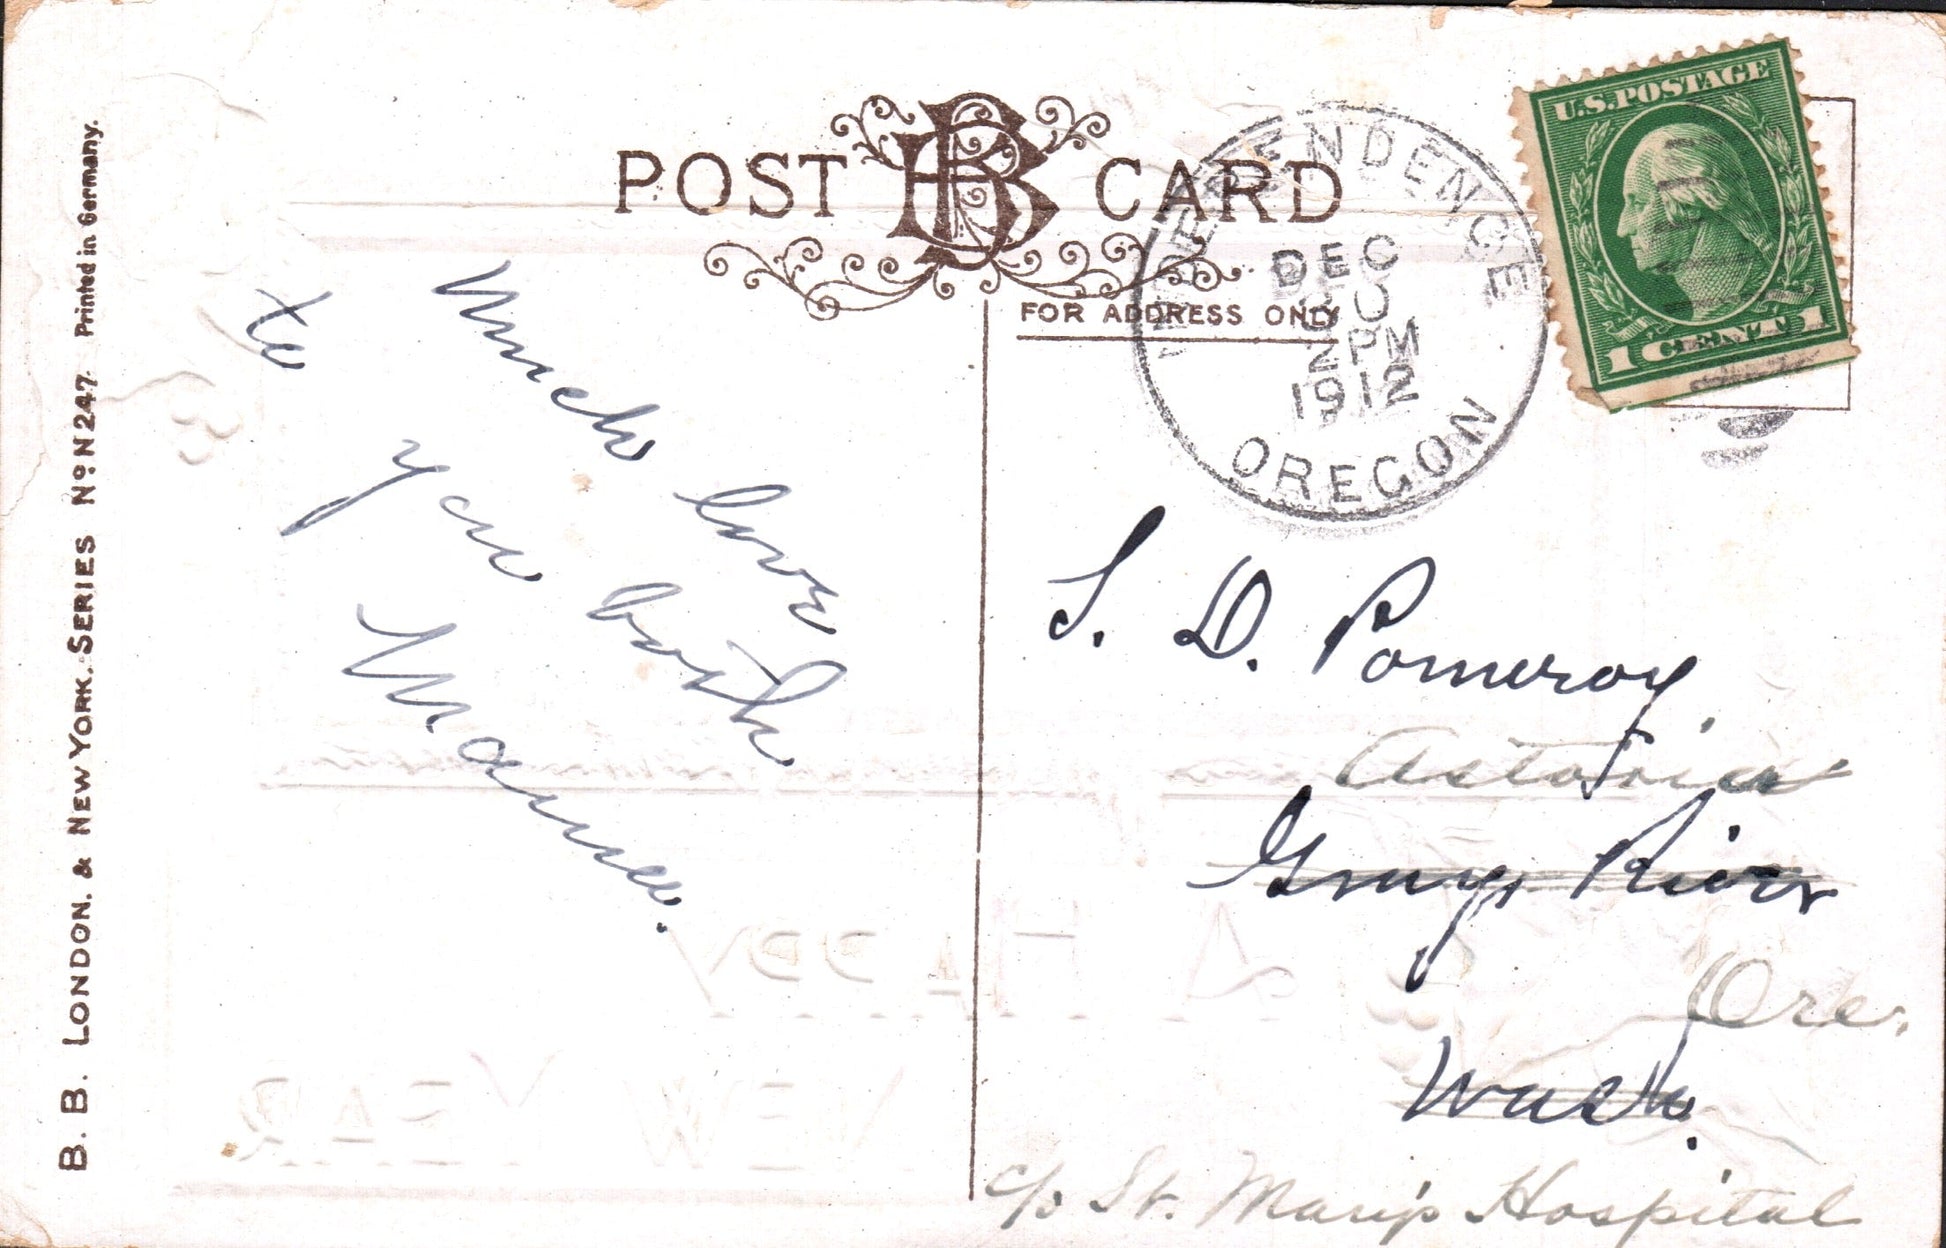 POST CARD
B. B. LONDON. & NEW YORK. SERIES No N 247. Printed in Germany.
FOR ADDRESS ONLY
INDEPENDENCE
DEC
30
2PM
1912
OREGON
U.S.POSTAGE
1 CENT 1
Much love
to you both
Mamma.
S. D. Pomeroy,
Astoria
Grays River
Ore.
Wash.
c/o St. Mary's Hospital
A HAPPY
NEW YEAR